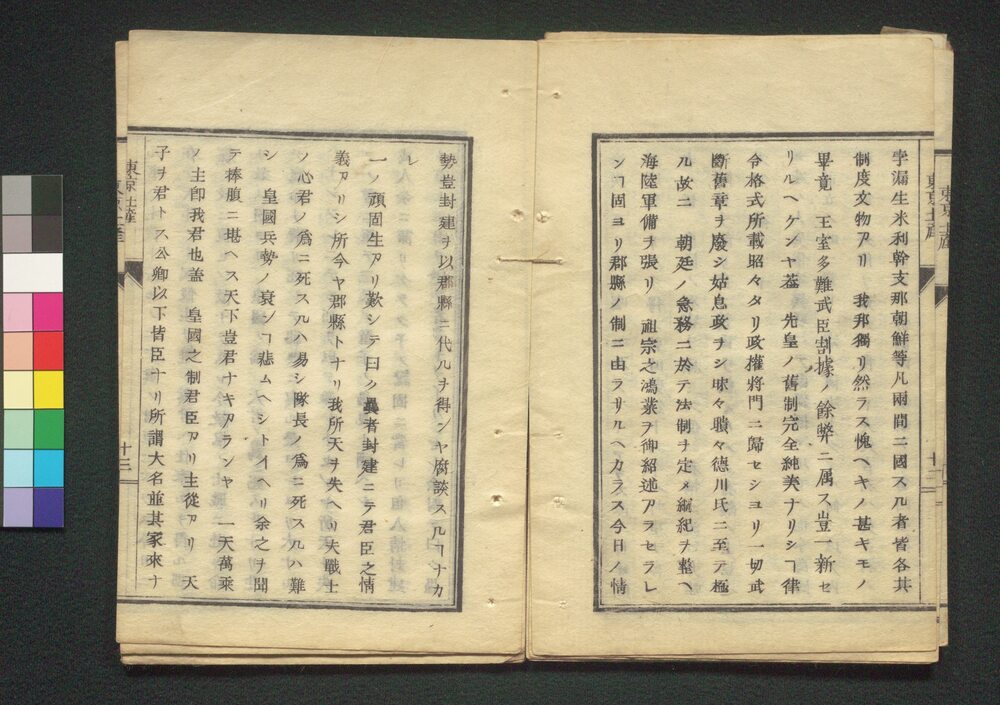 字漏生米利幹支那朝鮮等凡兩間ニ國スル者皆各其
制度文物アリ　我邦獨リ然ラス愧ヘキノ甚キモノ
畢竟　王室多難武臣割據ノ餘弊ニ属ス豈一新セ
リルヘケンヤ葢　先皇ノ舊制完全純美ナリシヿ律
令格式所載昭々タリ政權將門ニ歸セシヨリ一切武
斷舊章ヲ廢シ姑息政ヲナシ昧々聵々德川氏ニ至テ極
ル故ニ　朝廷ノ急務ニ於テ法制ヲ定メ綱紀ヲ整ヘ
海陸軍備ヲ張リ　祖宗之鴻業ヲ御紹述アラセラレ
ンヿ固ヨリ郡縣ノ制ニ由ラサルヘカラス今日ノ情
十二
勢豈封建ヲ以郡縣ニ代ルヲ得ンヤ腐談スルヿナカ
レ
一ノ頑固生アリ歎シテ曰ク曩者封建ニテ君臣之情
義アリシ所今ヤ郡縣トナリ我所天ヲ失ヘリ夫戰士
ノ心君ノ爲ニ死スルハ易シ隊長ノ爲ニ死スルハ難
シ　皇國兵勢ノ衰ンヿ悲ムヘシトイヘリ余之ヲ聞
テ捧腹ニ堪ヘス天下豈君ナキアランヤ　一天萬乘
ノ主卽我君也葢　皇國之制君臣アリ主從アリ　天
子ヲ君トス公卿以下皆臣ナリ所謂大名並其家來ナ
東京土産
十三